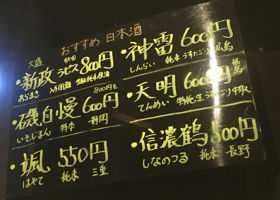 おすすめ 日本酒
大盛
・新政 ラピス 800円
あらまさ 秋田
・磯自慢 600円
いそじまん 特本 静岡
・颯 550円
はやて 純米 三重
・神雷 600円
しんらい 純米 うすにごり 広島
・天明 600円
てんめい うすにごり
・信濃鶴 500円
しなのつる 純米 長野